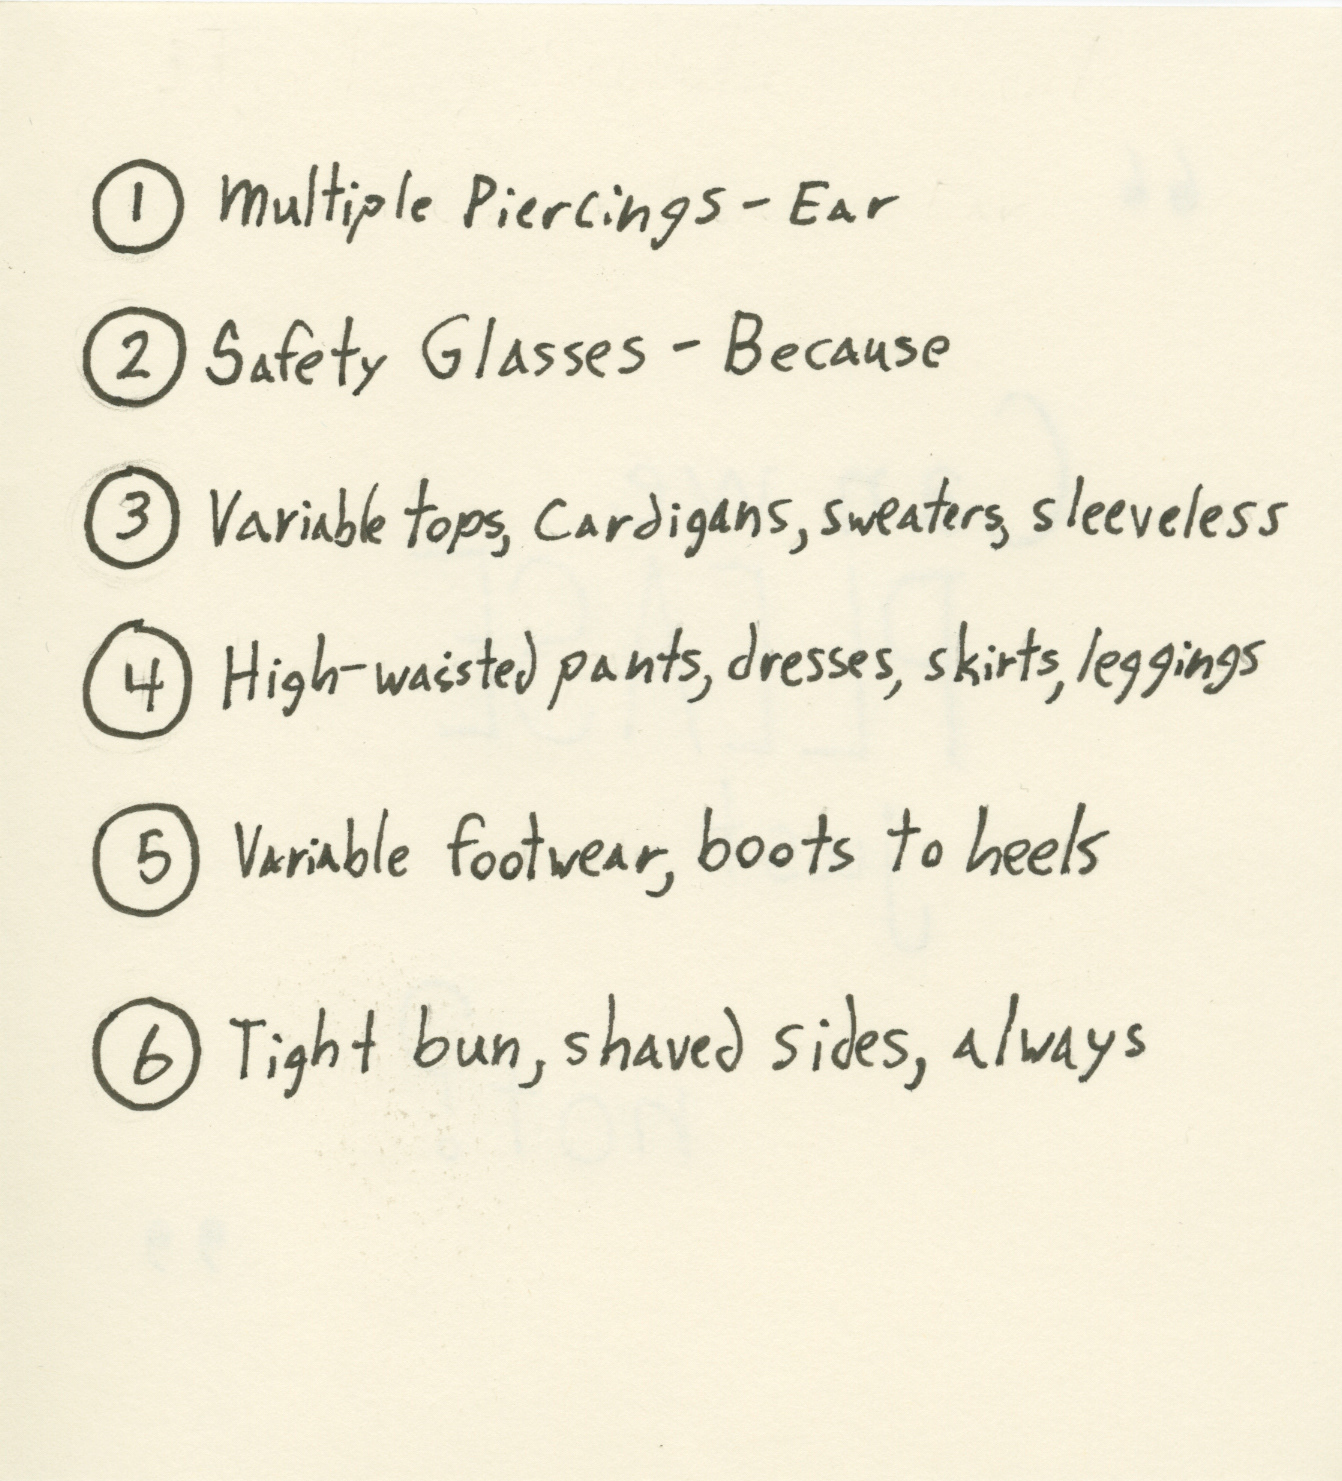 1 Multiple Piercings - Ear
2 Safety Glasses - Because
3 Variable tops, Cardigans, sweaters, sleeveless
4 High-waisted pants, dresses, skirts, leggings
5 Variable footwear, boots to heels
6 Tight bun, shaved sides, always